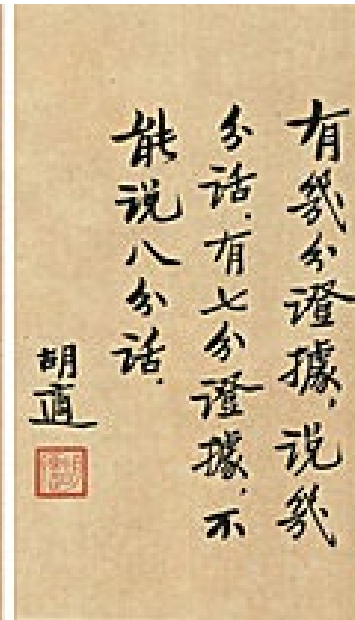 有幾分證據，说幾
分话．有七分證據，不
能说八分话．
胡適